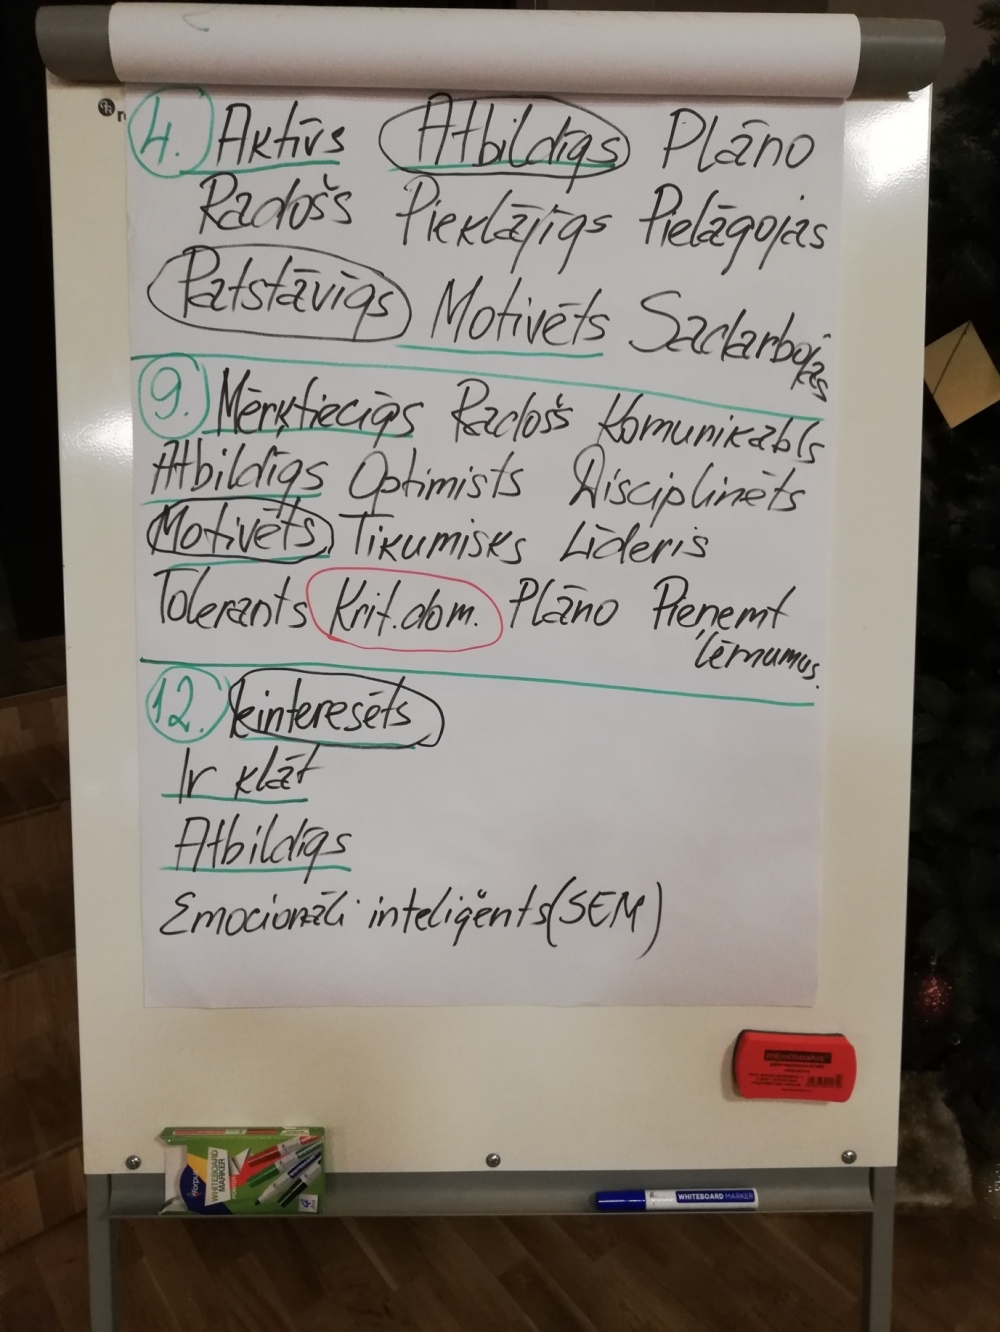 4. Aktīvs Atbildīgs Plāno
Radošs Pieklājīgs Pielāgojas
Patstāvīgs Motivēts Sadarbojas
9. Mērķtiecīgs Radošs Komunikabls
Atbildīgs Optimists Disciplinēts
Motivēts Tikumisks Līderis
Tolerants Krit.dom. Plāno Pieņemt
lēmumus.
12. Ieinteresēts
Ir klāt
Atbildīgs
Emocionāli inteliģents (SEM)
WHITEBOARD
MARKER
WHITEBOARD MARKER